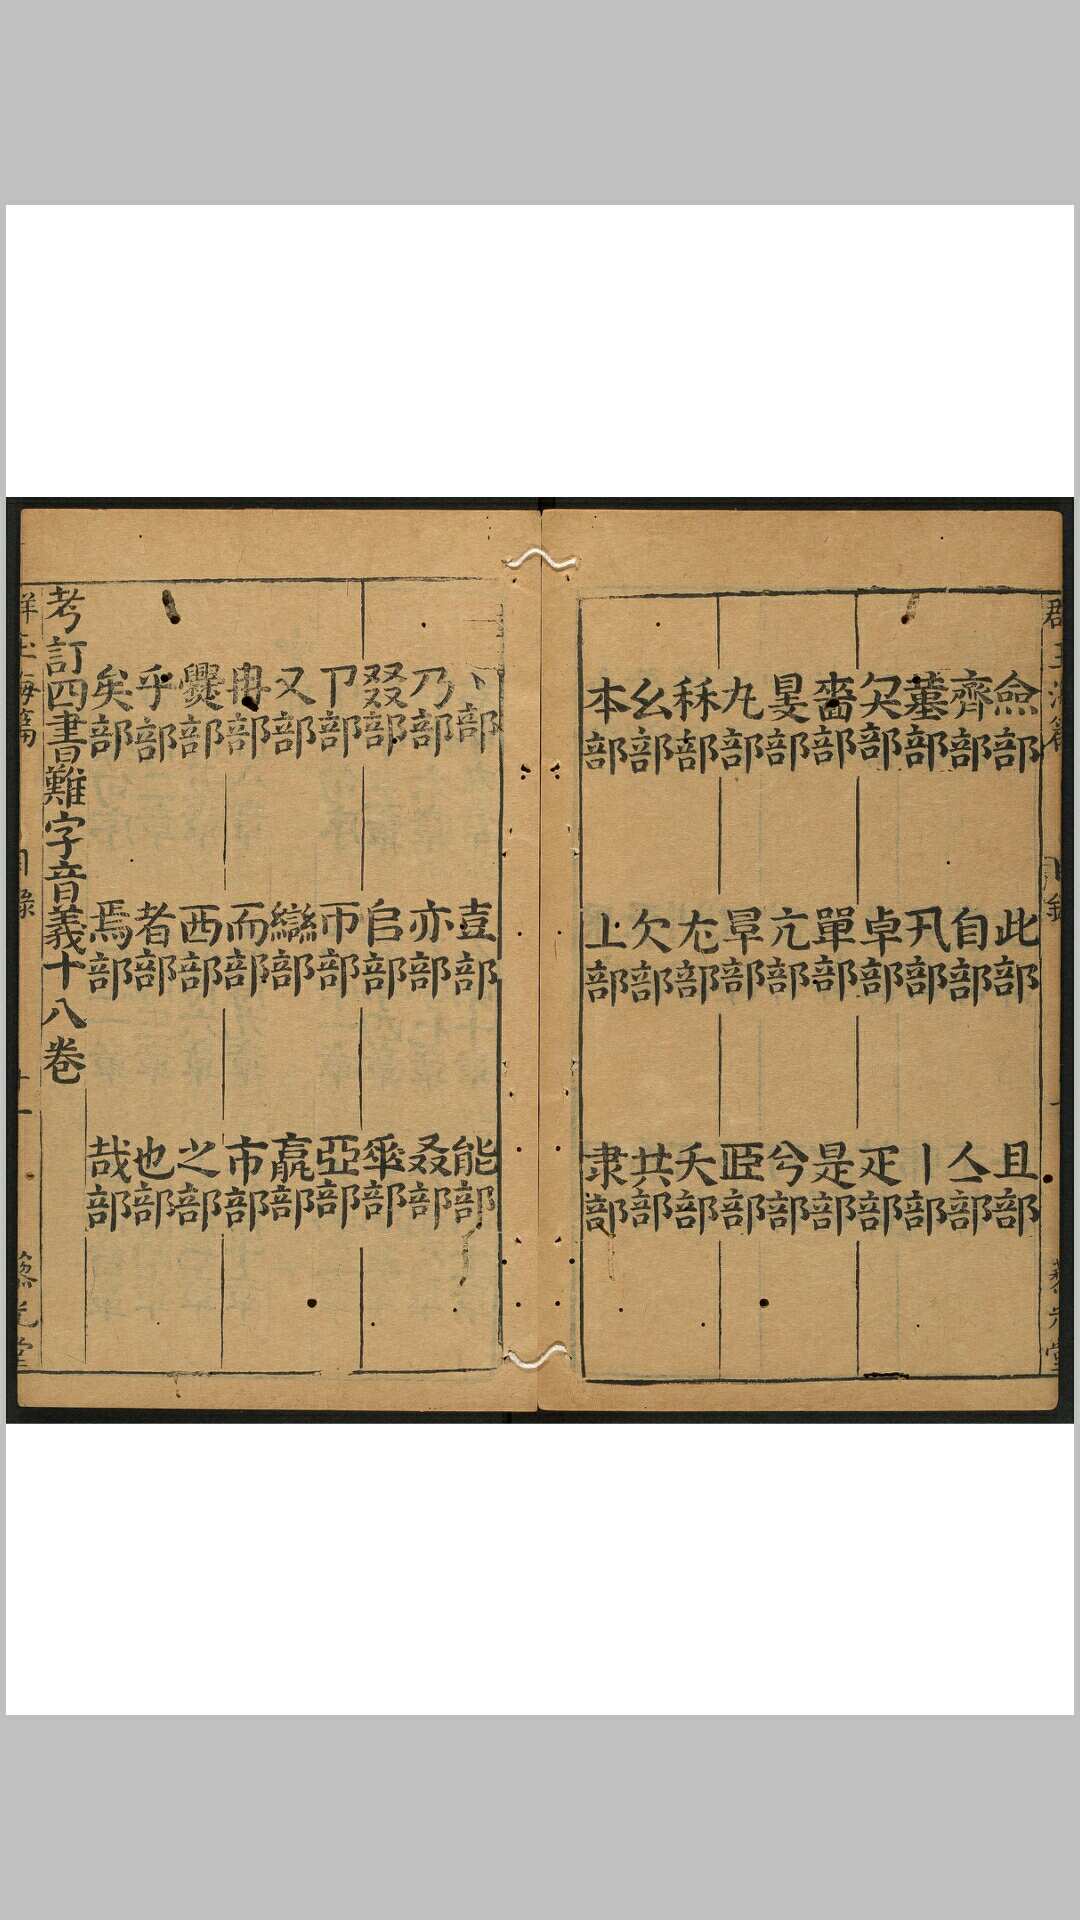 僉部 此部 且部
齊部 自部 亼部
董部 卂部 丨部
欠部 卓部 疋部
嗇部 單部 是部
旻部 亢部 兮部
九部 尢部 𦣞部
秝部 夭部
幺部 欠部 共部
本部 上部 隶部
丶部 壴部 能部
乃部 亦部 叒部
叕部 㠯部 𠂹部
卩部 帀部 亞部
又部 䜌部 𣎆部
冉部 而部 巿部
爨部 西部 之部
乎部 者部 也部
矣部 焉部 哉部
考訂四書難字音義十八卷
群玉海篇 目錄 十一 慕光堂